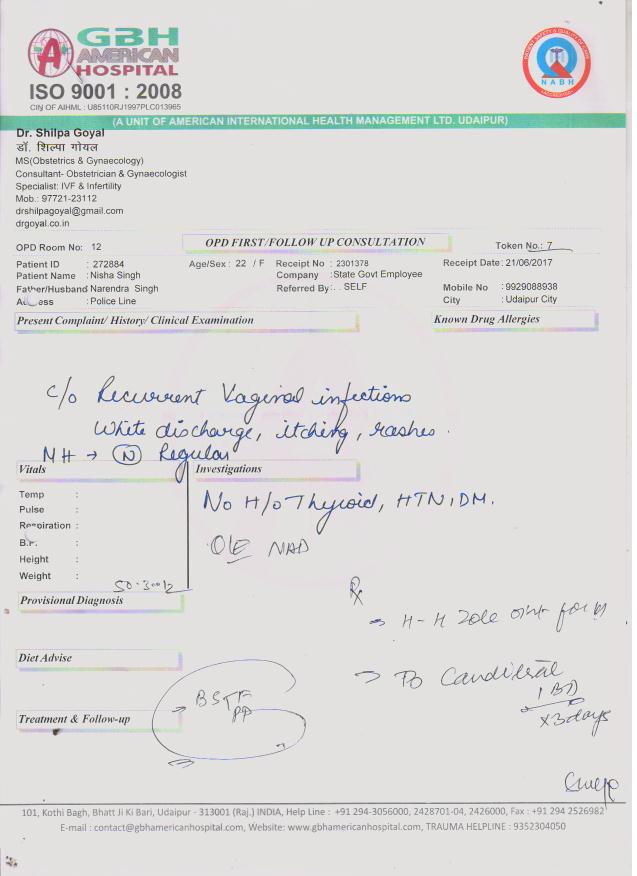 GBH
AMERICAN
HOSPITAL
ISO 9001 : 2008
CIN OF AIHML : U85110RJ1997PLC013965
PATIENT SAFETY & QUALITY OF CARE
NABH
(A UNIT OF AMERICAN INTERNATIONAL HEALTH MANAGEMENT LTD. UDAIPUR)
Dr. Shilpa Goyal
डॉ. शिल्पा गोयल
MS(Obstetrics & Gynaecology)
Consultant- Obstetrician & Gynaecologist
Specialist: IVF & Infertility
Mob.: 97721-23112
drshilpagoyal@gmail.com
drgoyal.co.in
OPD Room No: 12
OPD FIRST/FOLLOW UP CONSULTATION
Token No.: 7
Patient ID : 272884 Age/Sex : 22 / F Receipt No : 2301378 Receipt Date : 21/06/2017
Patient Name : Nisha Singh Company : State Govt Employee
Father/Husband Narendra Singh Referred By : . . SELF Mobile No : 9929088938
: Police Line City : Udaipur City
Present Complaint/ History/ Clinical Examination Known Drug Allergies
c/o Recurrent Vaginal infections
White discharge, itching, rashes.
MH → (N) Regular
Vitals Investigations
Temp :
Pulse :
Respiration :
B.P. :
Height :
Weight :
No H/o Thyroid, HTN, DM.
O/E NAD
Provisional Diagnosis
Rx
→ H-H Zole oint for
Diet Advise
1 BD
x3days
→ BSTF
PP
Treatment & Follow-up
101, Kothi Bagh, Bhatt Ji Ki Bari, Udaipur - 313001 (Raj.) INDIA, Help Line : +91 294-3056000, 2428701-04, 2426000, Fax : +91 294 2526982
E-mail : contact@gbhamericanhospital.com, Website: www.gbhamericanhospital.com, TRAUMA HELPLINE : 9352304050